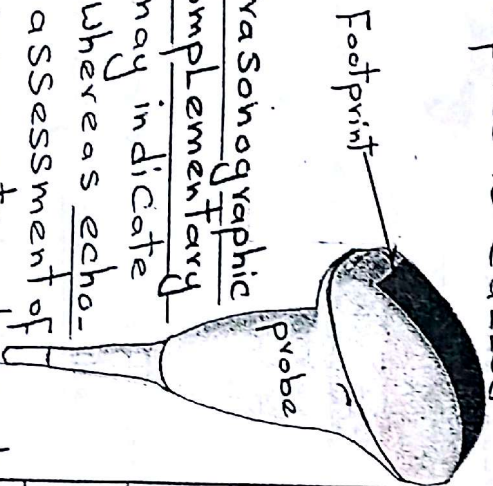 Footprint
probe
rasonographic
mplementary
may indicate
whereas echo-
assessment of